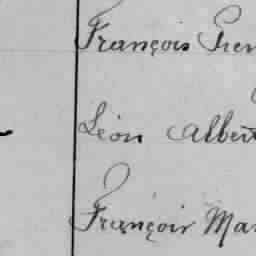 François
Léon Albert
François